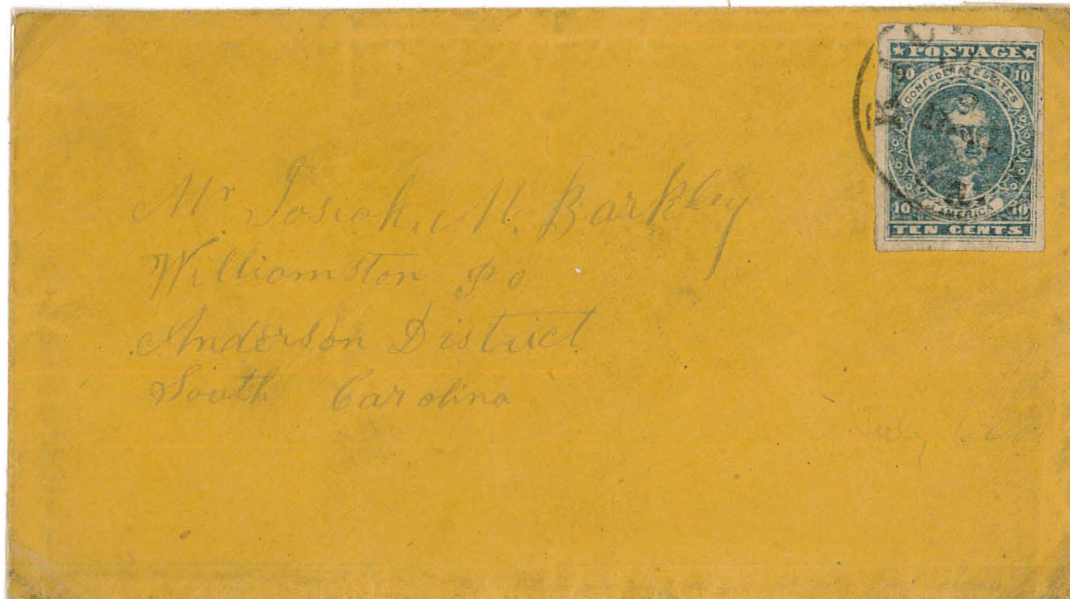 ★ POSTAGE ★
10 10
CONFEDERATE STATES
OF AMERICA
10 10
TEN CENTS
Mr Josiah. M. Barkley
Williamston Po
Anderson District
South Carolina
62